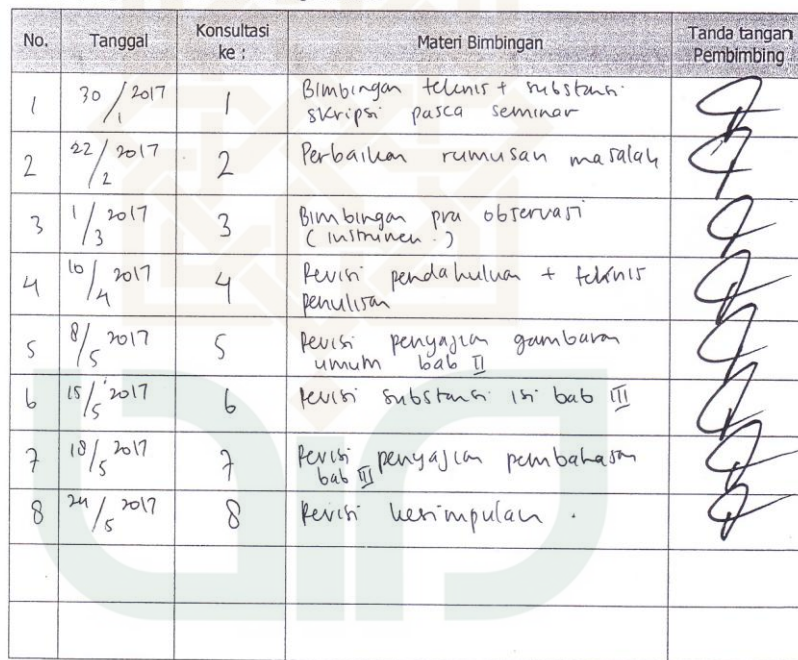 No. Tanggal Konsultasi ke : Materi Bimbingan Tanda tangan Pembimbing
1 30/1 2017 1 Bimbingan teknis + substansi
skripsi pasca seminar
2 22/2 2017 2 Perbaikan rumusan masalah
3 1/3 2017 3 Bimbingan pra observasi
(instrumen.)
4 10/4 2017 4 Revisi pendahuluan + teknis
penulisan
5 8/5 2017 5 Revisi penyajian gambaran
umum bab II
6 15/5 2017 6 Revisi substansi isi bab III
7 18/5 2017 7 Revisi penyajian pembahasan
bab III
8 24/5 2017 8 Revisi kesimpulan .